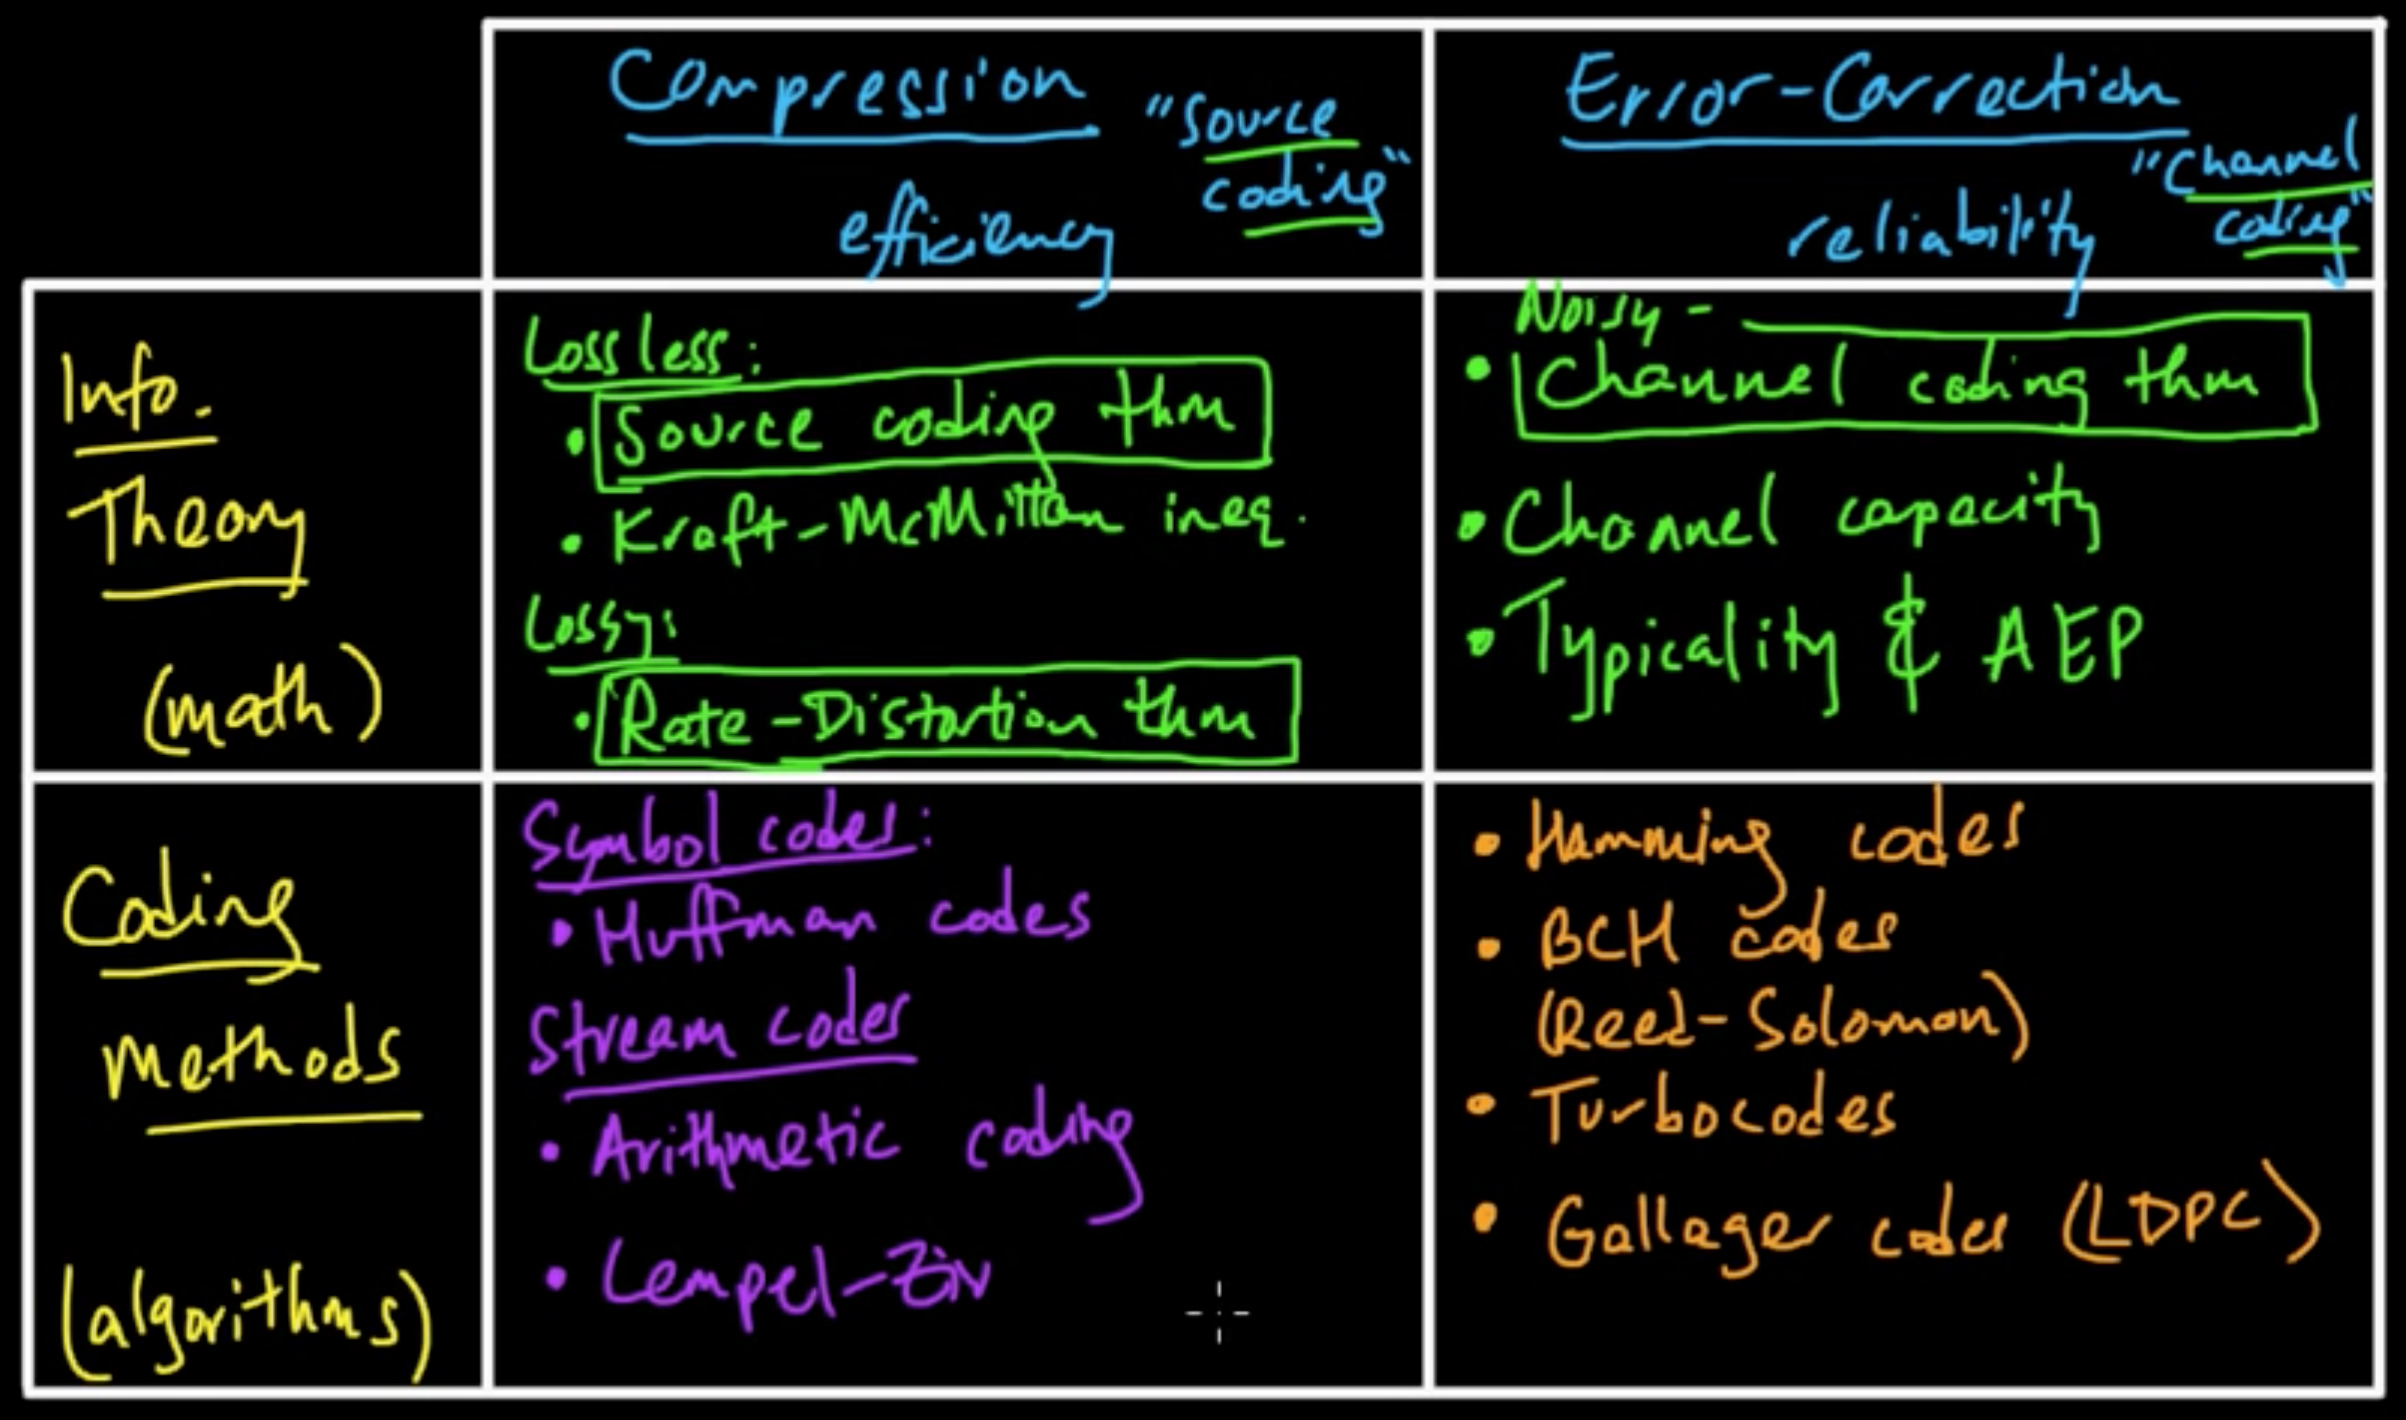 Compression
"Source
coding"
efficiency
Error-Correction
"Channel
coding"
reliability
Info.
Theory
(math)
Lossless:
• Source coding thm
• Kraft-McMillan ineq.
Lossy:
• Rate-Distortion thm
Noisy-
• Channel coding thm
• Channel capacity
• Typicality & AEP
Coding
Methods
(algorithms)
Symbol codes:
• Huffman codes
Stream codes
• Arithmetic coding
• Lempel-Ziv
• Hamming codes
• BCH codes
(Reed-Solomon)
• Turbocodes
• Gallager codes (LDPC)